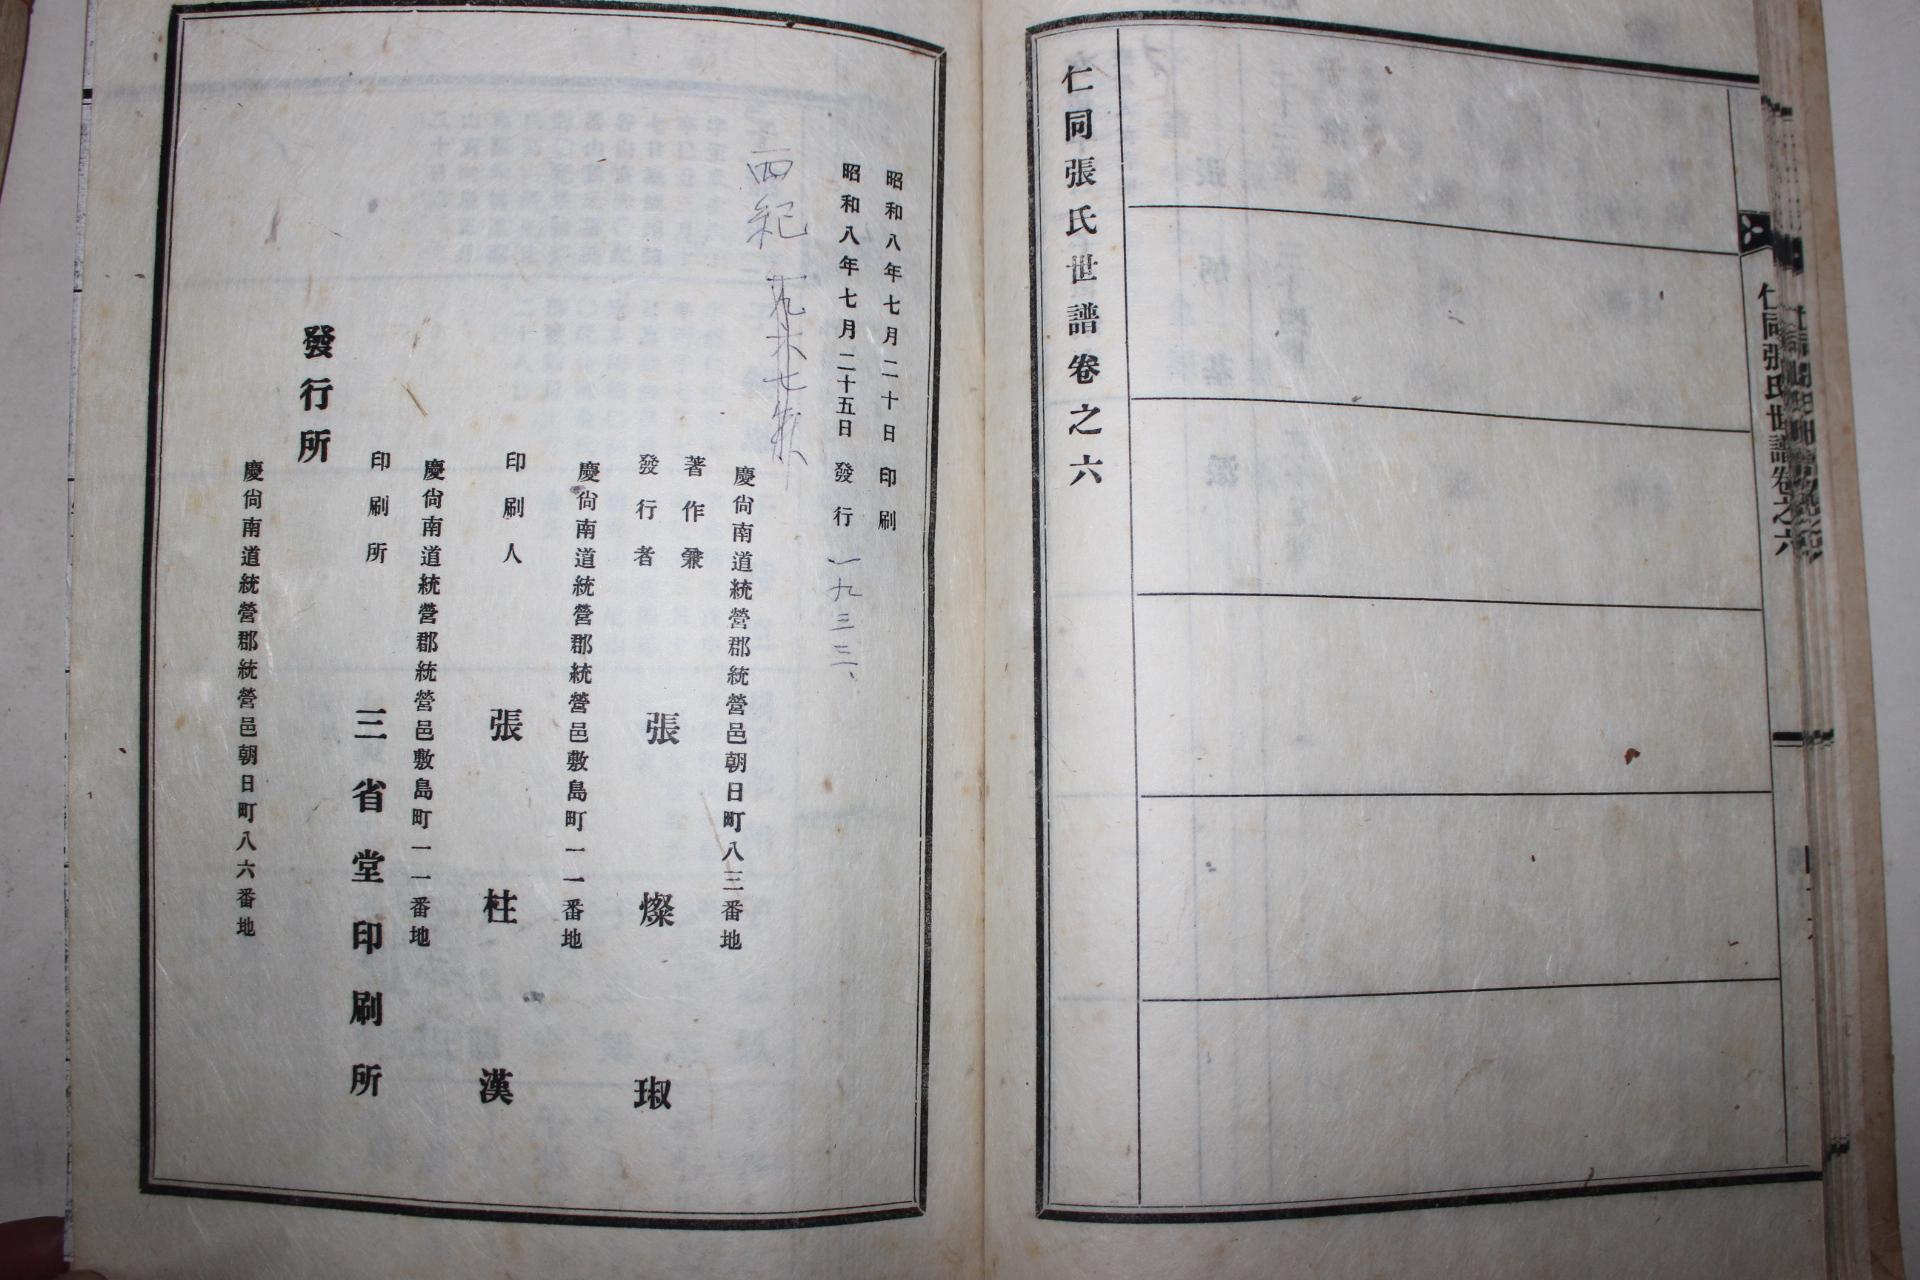 仁同張氏世譜卷之六
仁同張氏世譜卷之六
昭和八年七月二十日印刷
昭和八年七月二十五日發行 一九三三、
西紀 一九六七年
慶尙南道統營郡統營邑朝日町八三番地
著作兼
發行者 張燦琡
慶尙南道統營郡統營邑敷島町一一番地
印刷人 張柱漢
慶尙南道統營郡統營邑敷島町一一番地
印刷所 三省堂印刷所
發行所
慶尙南道統營郡統營邑朝日町八六番地